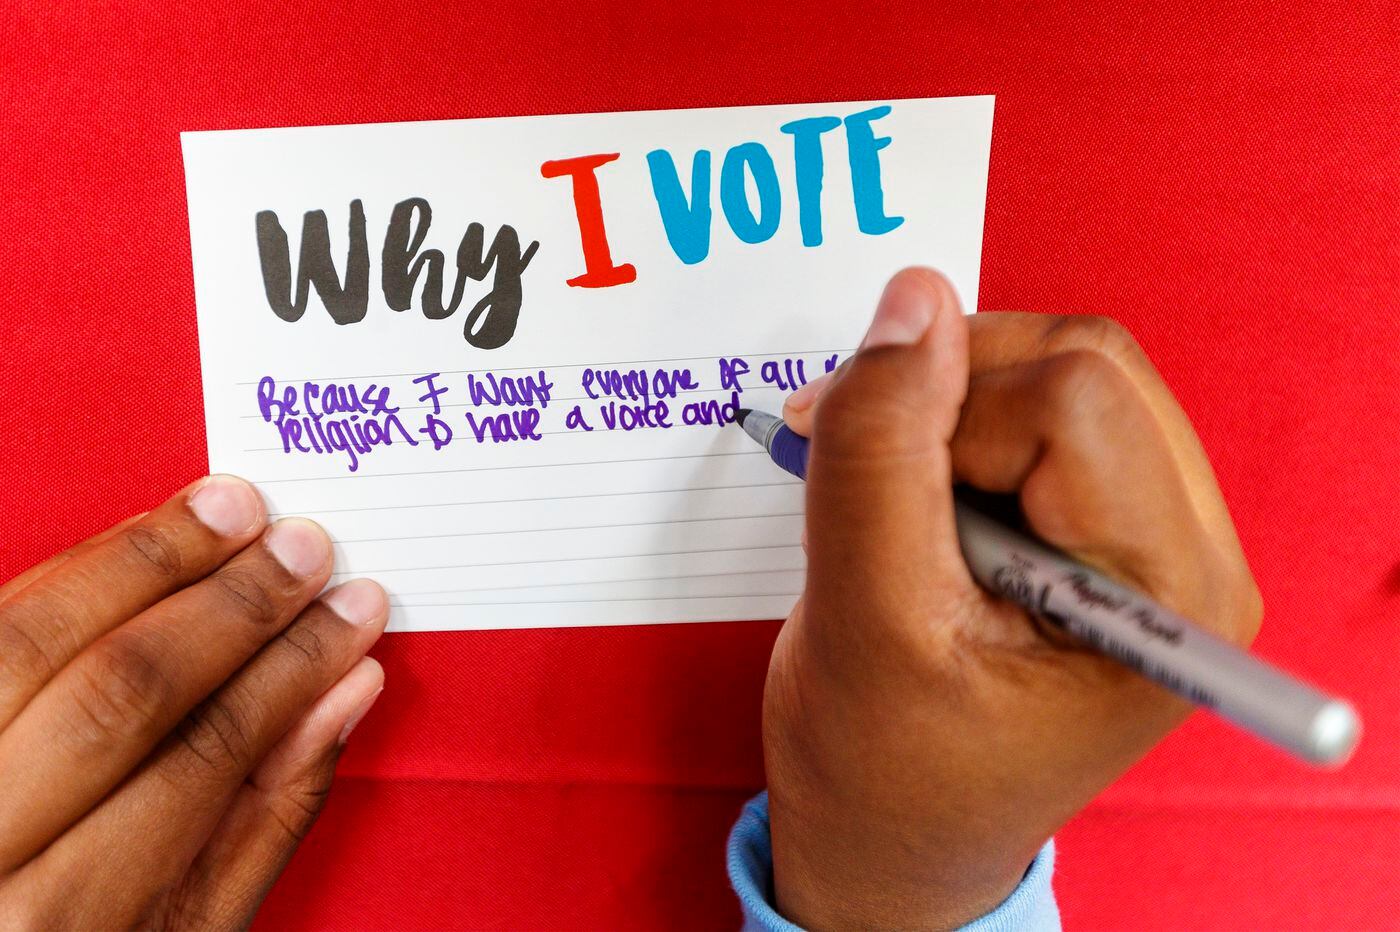 Why I VOTE
Because I want everyone of all
religion to have a voice and